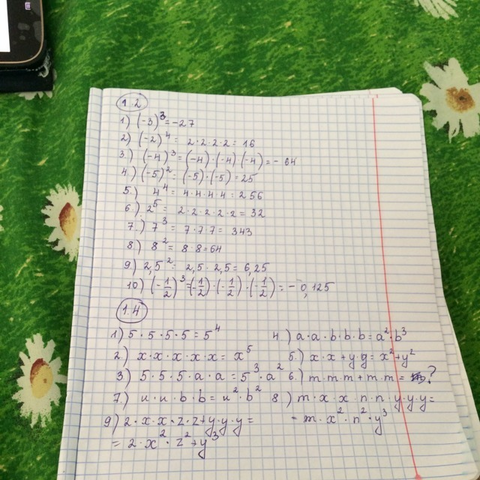 1.2
1) (-3)³ = -27
2) (-2)⁴ = 2·2·2·2 = 16
3.) (-4)³ = (-4)·(-4)(-4) = -64
4.) (-5)² = (-5)·(-5) = 25
5.) 4⁴ = 4·4·4·4 = 256
6.) 2⁵ = 2·2·2·2·2 = 32
7.) 7³ = 7·7·7 = 343
8.) 8² = 8·8 = 64
9) 2,5² = 2,5·2,5 = 6,25
10) (-1/2)³ = (-1/2)·(-1/2)·(-1/2) = -0,125
1.4
1) 5·5·5·5 = 5⁴ 4) a·a·b·b·b = a²·b³
2) x·x·x·x·x = x⁵ 5.) x·x+y·y = x²+y²
3) 5·5·5·a·a = 5³·a² 6) m·m·m+m·m = ?
7) u·u·b·b = u²·b² 8) m·x·x·n·n·y·y·y =
= m·x²·n²·y³
9) 2·x·x·z·z+y·y·y =
= 2·x²·z²+y³